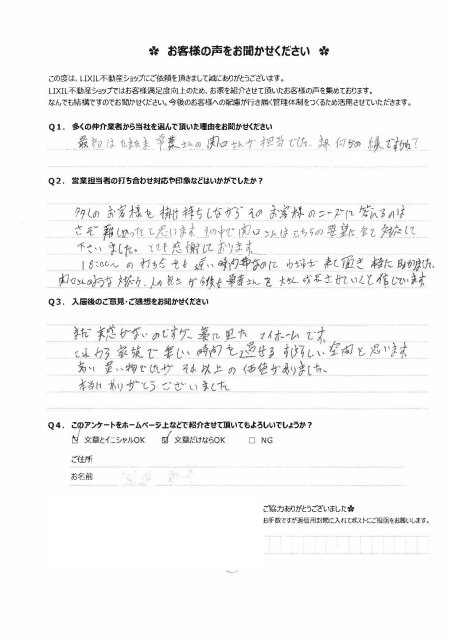 ✽ お客様の声をお聞かせください ✽
この度は、LIXIL不動産ショップにご依頼を頂きまして誠にありがとうございます。
LIXIL不動産ショップではお客様満足度向上のため、お家を紹介させて頂いたお客様の声を集めております。
なんでも結構ですのでお聞かせください。今後のお客様への配慮が行き届く管理体制をつくるため活用させていただきます。
Q1．多くの仲介業者から当社を選んで頂いた理由をお聞かせください
最初はたまたま さんの関口さんが担当でした。 何かの縁ですかね?
Q2．営業担当者の打ち合わせ対応や印象などはいかがでしたか？
多くのお客様を掛け持ちしながらそのお客様のニーズに答えるのは
さぞ難しかったと思います。その中で関口さんはこちらの要望に全て対応して
下さいました。とても感謝しております
18:00〜の打ち合せも遅い時間帯なのに 来て頂き 特に助かりました。
関口さんのような 人の良さが今後も さんを大きく成長させていくと信じています
Q3．入居後のご意見・ご感想をお聞かせください
まだ実感がないのですが、夢に見たマイホームです。
これから家族で楽しい時間を過せるすばらしい空間と思います
高い買い物でしたがそれ以上の価値がありました。
本当にありがとうございました
Q4．このアンケートをホームページ上などで紹介させて頂いてもよろしいでしょうか？
☑ 文章とイニシャルOK ☑ 文章だけならOK □ NG
ご住所
お名前
ご協力ありがとうございました✽
お手数ですが返信用封筒に入れてポストにご投函をお願いします。